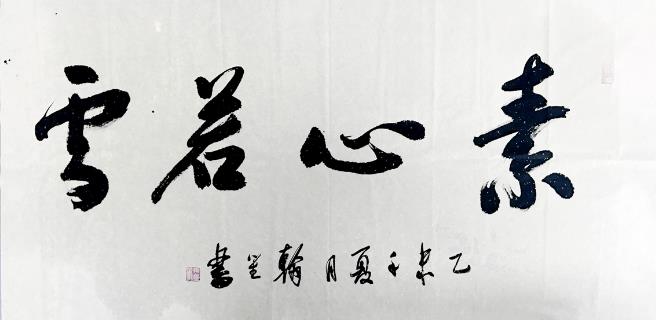 素心若雪
乙未年夏月翰書